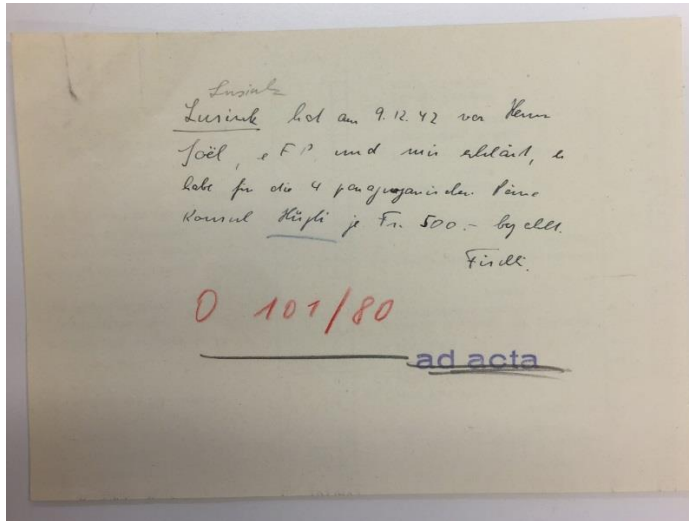 Lusink
Lusink hat am 9.12.42 vor Herrn
Joël, e F.P. und mir erklärt, er
habe für die 4 paraguayanischen Pässe
Konsul Hügli je Fr. 500.- bezahlt.
O 101/80
ad acta